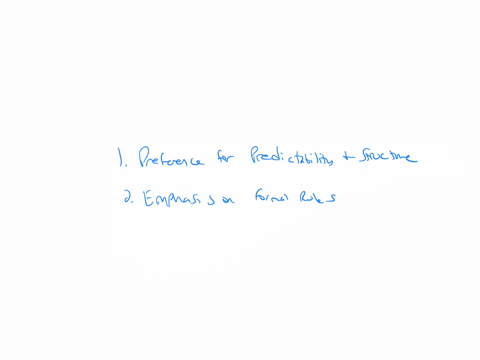 1. Preference for Predictability + Structure
2. Emphasis on Formal Rules